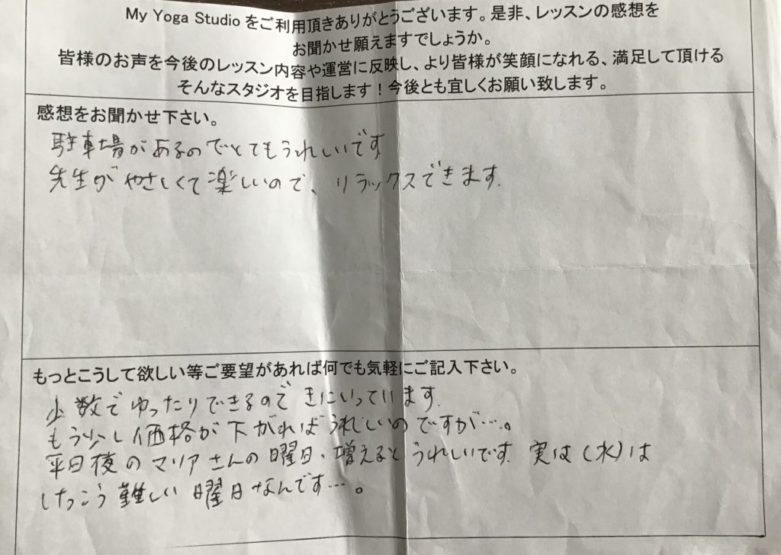 My Yoga Studio をご利用頂きありがとうございます。是非、レッスンの感想を
お聞かせ願えますでしょうか。
皆様のお声を今後のレッスン内容や運営に反映し、より皆様が笑顔になれる、満足して頂ける
そんなスタジオを目指します！今後とも宜しくお願い致します。
感想をお聞かせ下さい。
駐車場があるのでとてもうれしいです
先生がやさしくて楽しいので、リラックスできます.
もっとこうして欲しい等ご要望があれば何でも気軽にご記入下さい。
少数でゆったりできるので きにいっています.
もう少し価格が下がればうれしいのですが…。
平日夜のマリアさんの曜日、増えるとうれしいです. 実は(水)は
けっこう難しい曜日なんです…。